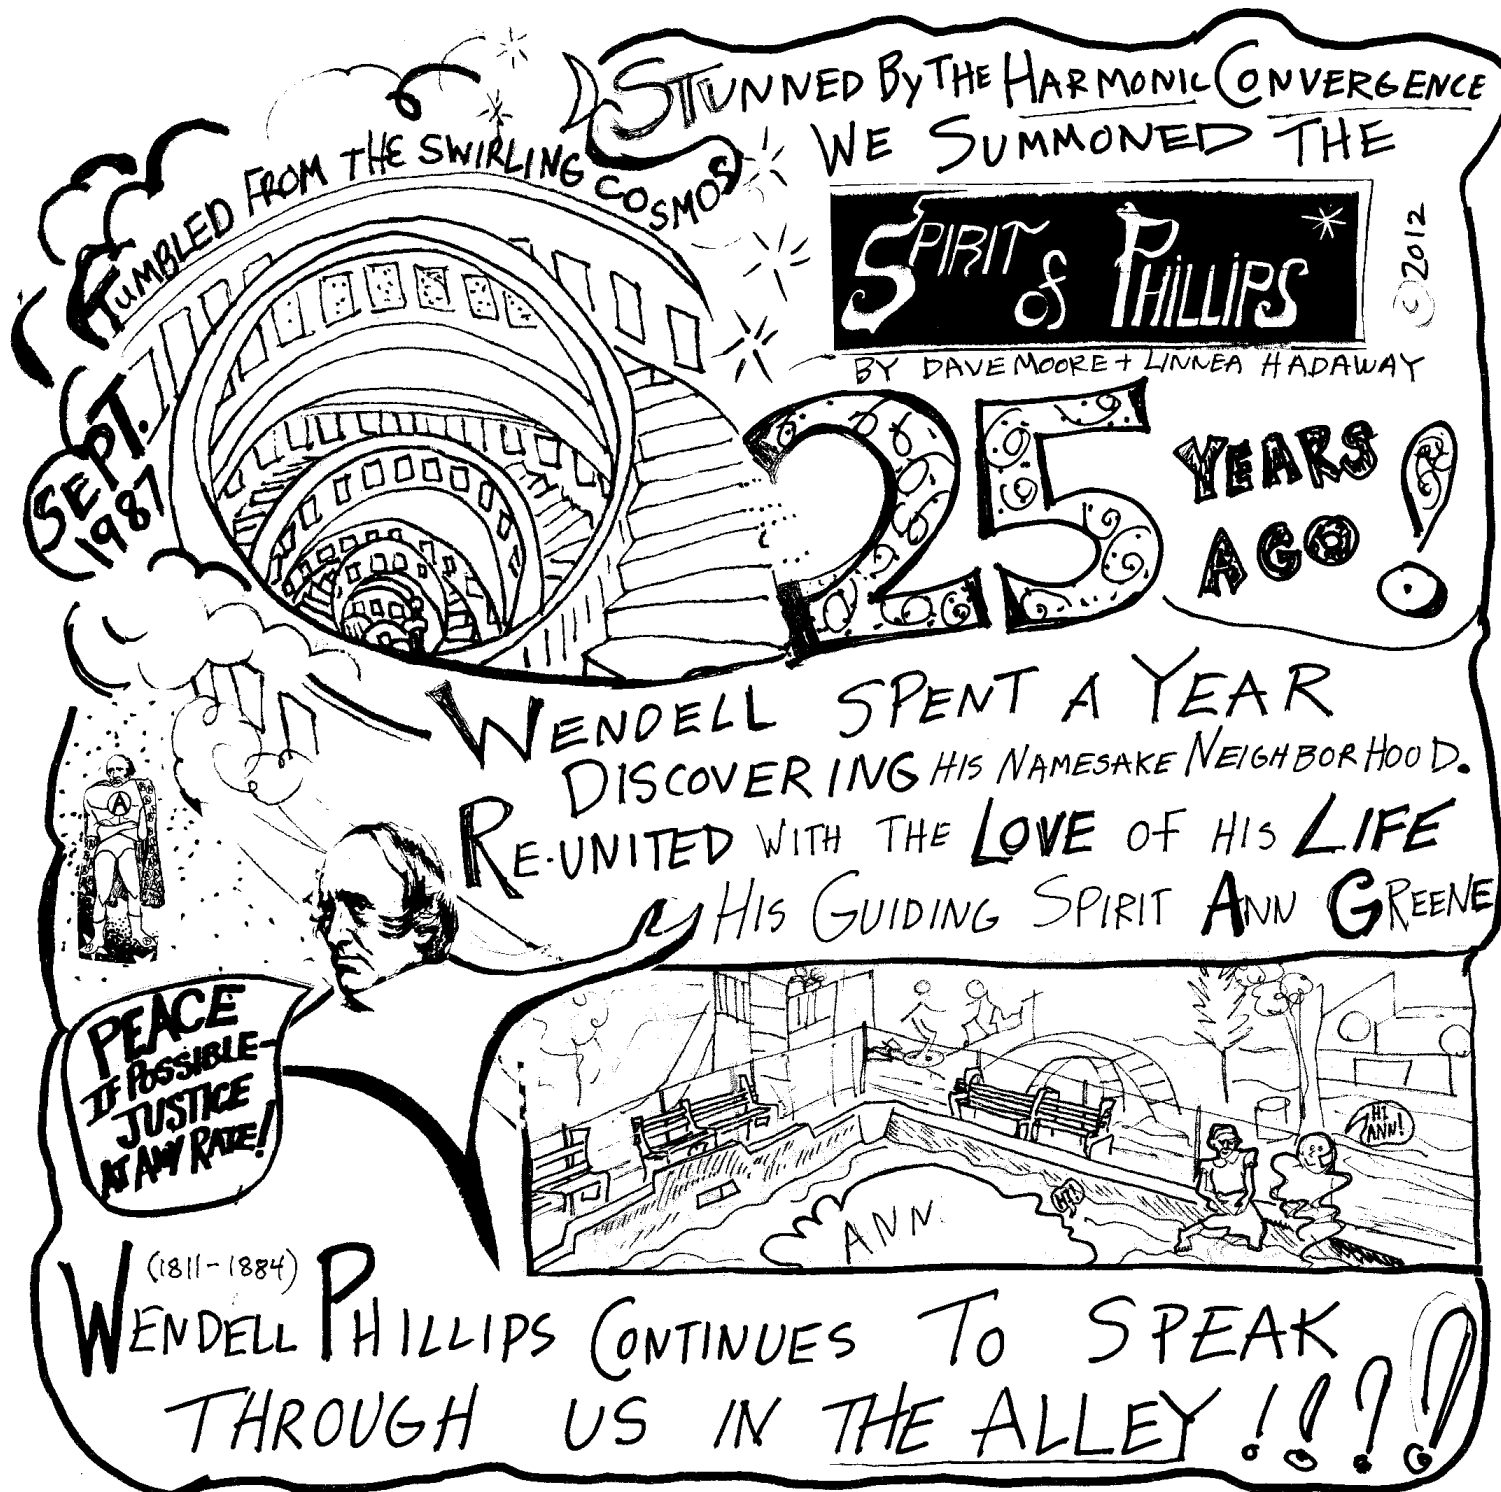 STUNNED BY THE HARMONIC CONVERGENCE
WE SUMMONED THE
TUMBLED FROM THE SWIRLING COSMOS
SPIRIT of PHILLIPS
©2012
BY DAVE MOORE + LINNEA HADAWAY
SEPT.
1987
25 YEARS
AGO!
WENDELL SPENT A YEAR
DISCOVERING HIS NAMESAKE NEIGHBORHOOD.
RE-UNITED WITH THE LOVE OF HIS LIFE
HIS GUIDING SPIRIT ANN GREENE
A
PEACE
IF POSSIBLE-
JUSTICE
AT ANY RATE!
HI
ANN!
HI!
ANN.
(1811-1884)
WENDELL PHILLIPS CONTINUES TO SPEAK
THROUGH US IN THE ALLEY!!??!